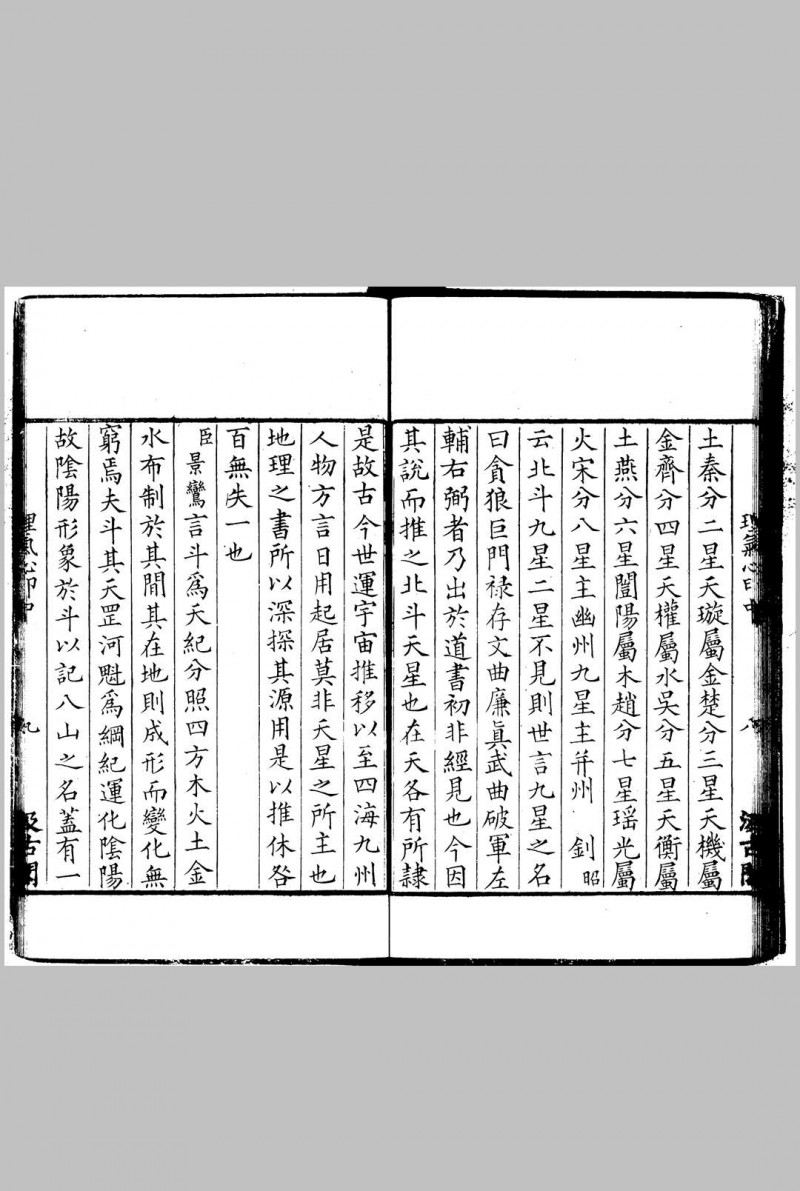 土秦分二星天璇屬金楚分三星天機屬
金齊分四星天權屬水吳分五星天衡屬
土燕分六星闓陽屬木趙分七星瑶光屬
火宋分八星主幽州九星主并州　釗昭
云北斗九星二星不見則世言九星之名
曰貪狼巨門禄存文曲廉眞武曲破軍左
輔右弼者乃出於道書初非經見也今因
其說而推之北斗天星也在天各有所隷
理氣心印中
八
汲古閣
是故古今世運宇宙推移以至四海九州
人物方言日用起居莫非天星之所主也
地理之書所以深探其源用是以推休咎
百無失一也
臣景鸞言斗爲天紀分照四方木火土金
水布制於其間其在地則成形而變化無
窮焉夫斗其天罡河魁爲綱紀運化陰陽
故陰陽形象於斗以記八山之名蓋有一
理氣心印中
九
汲古閣